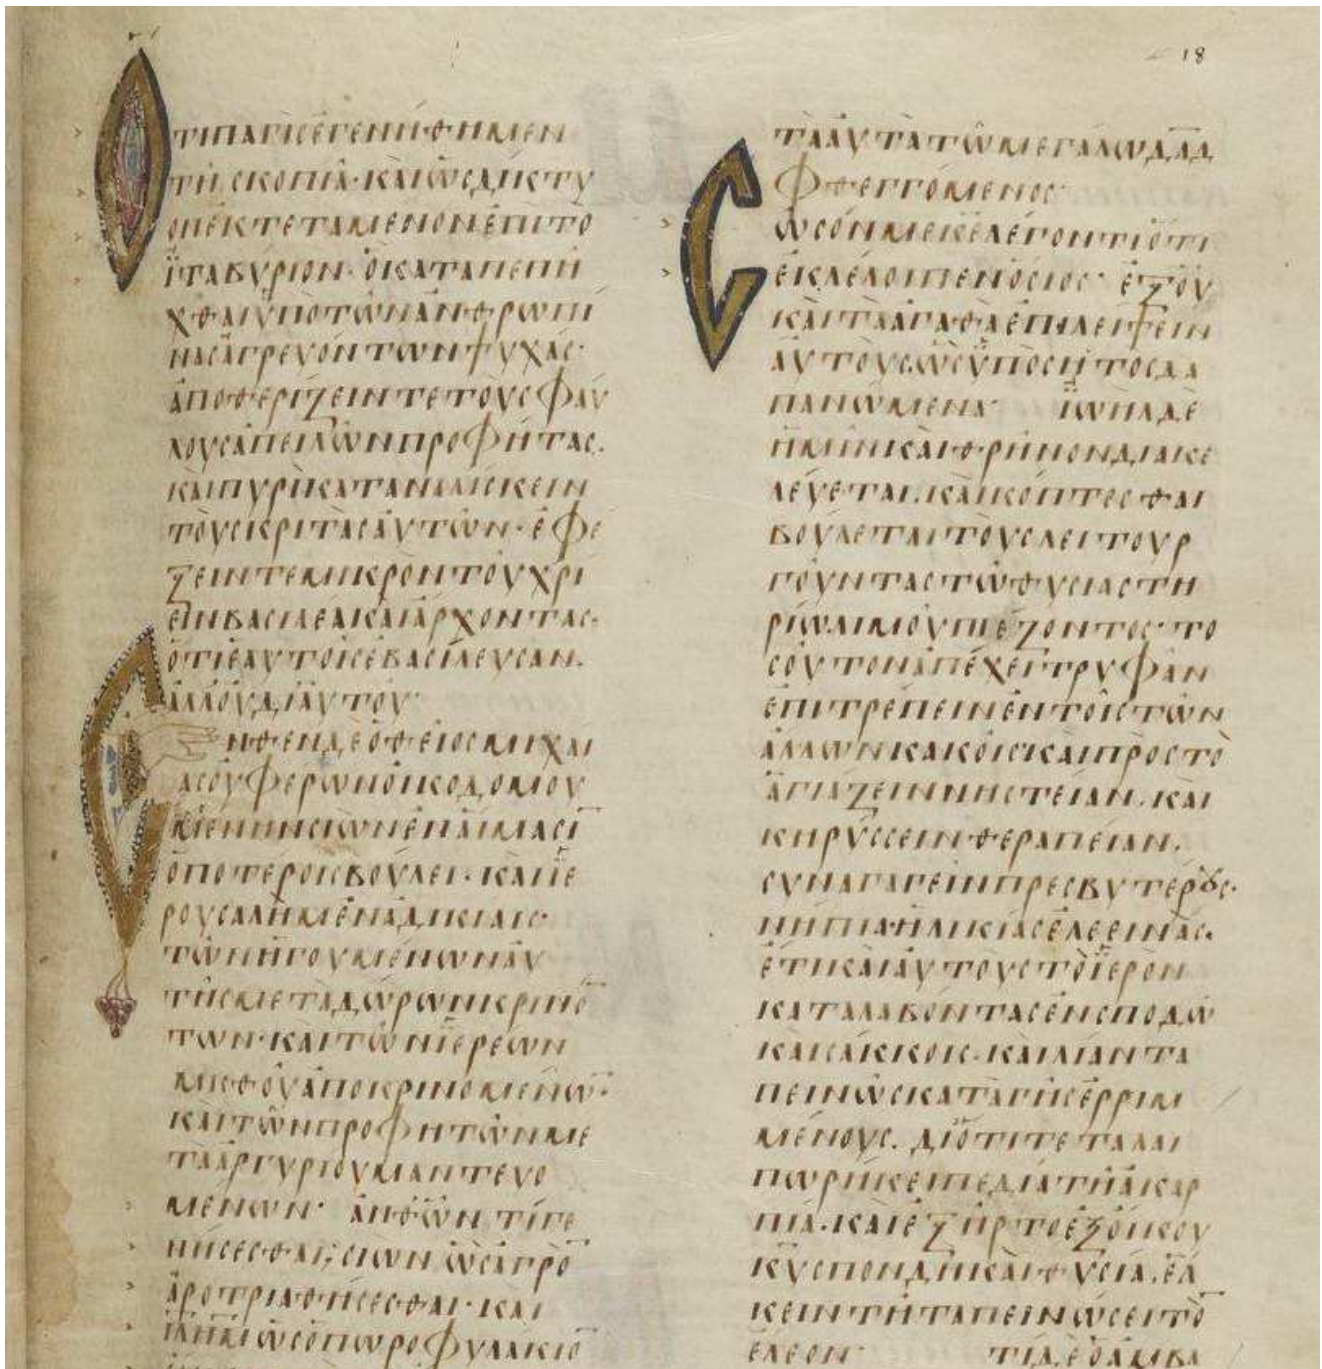 ὍΤΙ ΠΑΓῚϹ ἘΓΕΝΉΘΗΜΕΝ
ΤΗ͂ ϹΚΟΠΙΑ͂· ΚΑῚ ὩϹ ΔΊΚΤΥ
ΟΝ ἘΚΤΕΤΑΜΕΝΟΝ ἘΠῚ ΤῸ
ἸΤΑΒΎΡΙΟΝ· ὋΚΑΤΑΠΕΠΗ͂
ΧΘΑΙ ὙΠΟ ΤΩ͂Ν ἈΝΘΡΩΠΊ
ΝΑϹ ἈΓΡΕΥΌΝΤΩΝ ΨΥΧΆϹ·
ἈΠΟΘΕΡΊΖΕΙΝ ΤΕ ΤΟΥϹ ΦΑΎ
ΛΟΥϹ ἈΠΕΙΛΩ͂Ν ΠΡΟΦΉΤΑϹ.
ΚΑΙ ΠΥΡῚ ΚΑΤΑΝΑΛΊϹΚΕΙΝ
ΤΟῪϹ ΚΡΙΤᾺϹ ἈΥΤΩ͂Ν· ἘΦΕ
ΞΕΙΝ ΤΕ ΜΙΚΡῸΝ ΤΟΥ͂ ΧΡΊ
ΕΙΝ ΒΑϹΙΛΈΑ ΚΑΙ ἌΡΧΟΝΤΑϹ·
ὍΤΙ ἙΑΥΤΟΙ͂Ϲ ἘΒΑϹΊΛΕΥϹΑΝ.
ἈΛΛ ὈΥ ΔΙ ἈΥΤΟΥ͂·
ἜΝΘΕΝ ΔΕ Ὁ ΘΕΙ͂ΟϹ ΜΙΧΑΊ
ΑϹ ὈΥ ΦΕΡΩΝ ὈΙΚΟΔΟΜΟΥ
ΜΕΝΗΝ ϹΙῺΝ ἘΝ ἈΙΜΑϹῙ
ὉΠΟΤΕΡΟΙϹ ΒΟΎΛΕΙ· ΚΑῚ ἹΕ
ΡΟΥϹΑΛῊΜ ἘΝ ἈΔΙΚΊΑΙϹ·
ΤΩ͂Ν ἩΓΟΥΜΈΝΩΝ ἈΥ
ΤΗ͂Ϲ ΜΕΤΑ ΔΏΡΩΝ ΚΡΙΝΌ̄
ΤΩΝ· ΚΑΙ ΤΩ͂Ν ἹΕΡΈΩΝ
ΜΙϹΘΟΥ͂ ἈΠΟΚΡΙΝΟΜΈΝΩ̄·
ΚΑῚ ΤΩ͂Ν ΠΡΟΦΗΤΩ͂Ν ΜΕ
ΤᾺ ἈΡΓΥΡΊΟΥ ΜΑΝΤΕΥΟ
ΜΈΝΩΝ· ἈΝΘ ὯΝ ΤΊ ΓΕ
ΝΉϹΕϹΘΑΙ; ϹΙῺΝ ὩϹ ἈΓΡῸ̄
ἈΡΟΤΡΙΑΘΉϹΕϹΘΑΙ· ΚΑΙ
ἸΛΗ̄Μ ὩϹ ὈΠΩΡΟΦΥΛΆΚΙΟ̄
ΤᾺ ἈΥΤᾺ ΤΩ͂ ΜΕΓΆΛΩ ΔᾹΔ
ΦΘΕΓΓΌΜΕΝΟϹ·
ϹΩ͂ϹΌΝ ΜΕ Κ̄Ε ΛΈΓΟΝΤΙ ὍΤΙ
ἘΚΛΈΛΟΙΠΕΝ ὍϹΙΟϹ· ἘΞ ΟΥ͂
ΚΑῚ ΤᾺ ἈΓΑΘᾺ ἘΠΙΛΕΊΨΕΙΝ
ἈΥΤΟῪϹ ὩϹ ὙΠΟ ϹΗΤΟϹ ΔΑ
ΠΑΝΏΜΕΝΑ· ἸΩΗΛ ΔΕ
ἩΜΙ͂Ν ΚΑῚ ΘΡΗ͂ΝΟΝ ΔΙΑΚΕ
ΛΕΎΕΤΑΙ. ΚΑῚ ΚΌΠΤΕϹΘΑΙ
ΒΟΎΛΕΤΑΙ ΤΟῪϹ ΛΕΙΤΟΥΡ
ΓΟΥ͂ΝΤΑϹ ΤΩ͂ ΘΥϹΙΑϹΤΗ
ΡΊΩ ΛΙΜΟΥ͂ ΠΙΈΖΟΝΤΟϹ· ΤΟ
ϹΟΥ͂ΤΟΝ ἈΠΈΧΕΙ ΤΡΥΦΑ͂Ν
ἘΠΙΤΡΈΠΕΙΝ ἘΝ ΤΟΙ͂Ϲ ΤΩ͂Ν
ἌΛΛΩΝ ΚΑΚΟΙ͂Ϲ ΚΑῚ ΠΡῸϹ ΤῸ
ἉΓΙΆΖΕΙΝ ΝΗϹΤΕΊΑΝ. ΚΑΙ
ΚΗΡΎϹϹΕΙΝ ΘΕΡΑΠΕΊΑΝ.
ϹΥΝΑΓΑΓΕΙ͂Ν ΠΡΕϹΒΥΤΕΡΟΥϹ·
ΝΉΠΙΑ ἩΛΙΚΊΑϹ ἘΛΕΕΙΝΆϹ.
ἜΤΙ ΚΑῚ ἈΥΤΟΥϹ ΤῸ ἹΕΡῸΝ
ΚΑΤΑΛΑΒΌΝΤΑϹ ἘΝ ϹΠΟΔΩ͂
ΚΑῚ ϹΆΚΚΟΙϹ· ΚΑῚ ΛΊΑΝ ΤΑ
ΠΕΙΝΩ͂Ϲ ΚΑΤᾺ ΓΗ͂Ϲ ἘΡΡΙΜ
ΜΈΝΟΥϹ. ΔΙΌΤΙ ΤΕΤΑΛΑΙ
ΠΏΡΗΚΕ ΠΕΔΊΑ ΤΗ͂ ἈΚΑΡ
ΠΊΑ· ΚΑΙ ἘΞΗ͂ΡΤΟ ἘΞ ὌΙΚΟΥ
Κ̄Υ ϹΠΟΝΔῊ ΚΑῚ ΘΥϹΊΑ. ἝΛ
ΚΕΙΝ ΤΗ͂ ΤΑΠΕΙΝΏϹΕΙ ΤῸ̄
ἜΛΕΟΝ· ΤΊ ΔΕ Ὁ ἈΜΒΑ